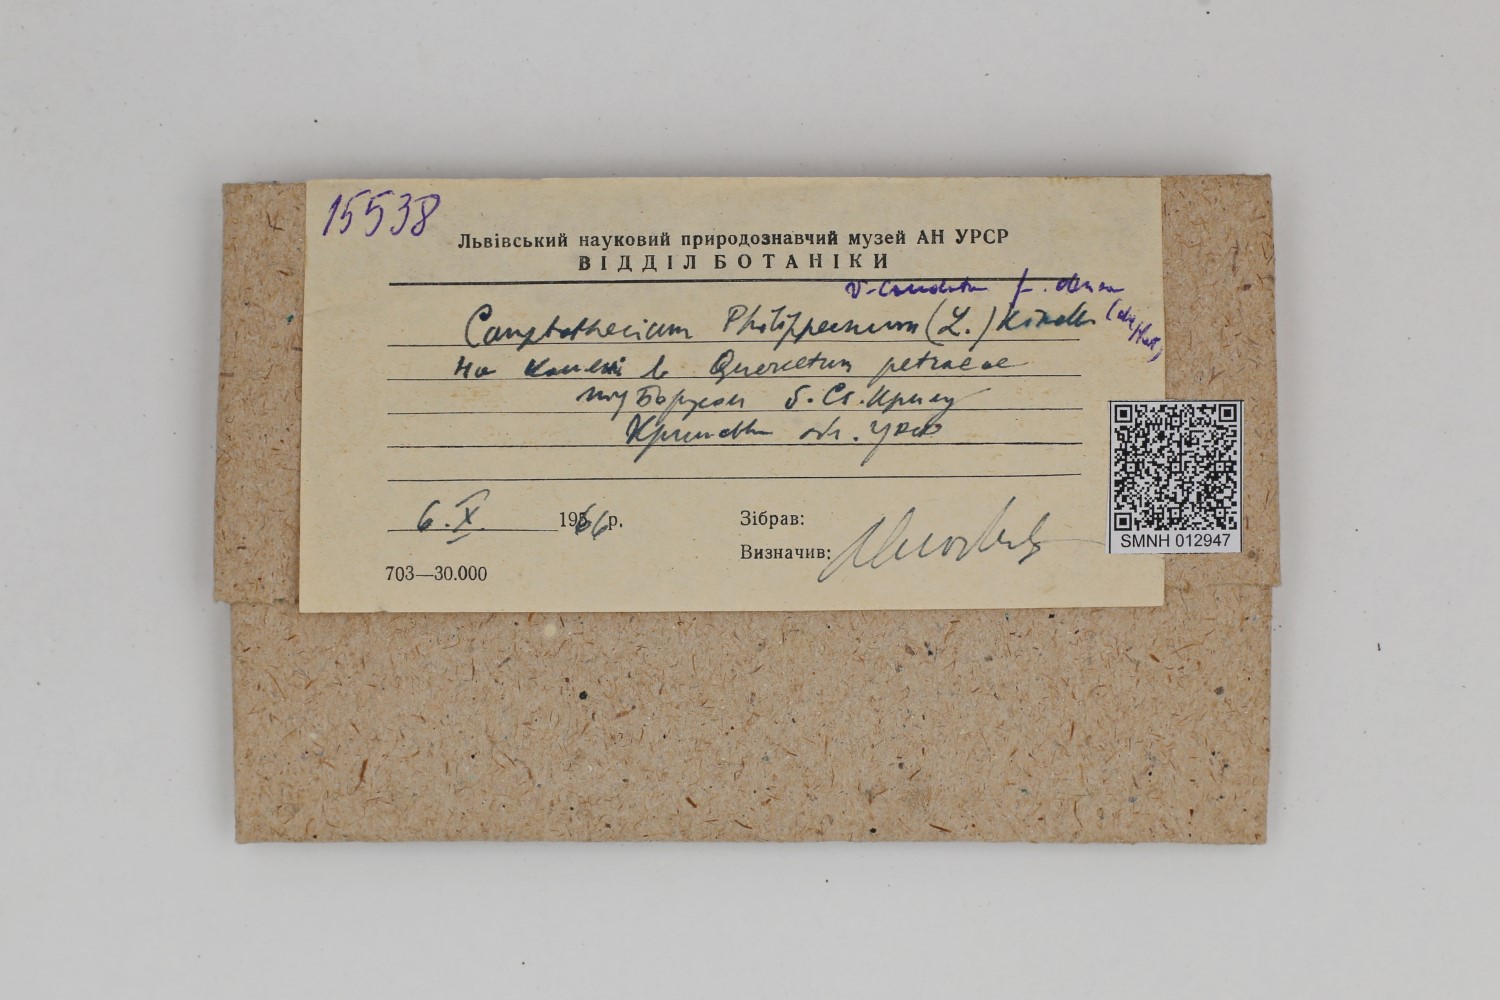 15538
Львівський науковий природознавчий музей АН УРСР
ВІДДІЛ БОТАНІКИ
f. densa
Camptothecium Philippeanum (L.) Kindb
На камені в Quercetum petraeae
б. Ст. Криму
обл. УРСР
6. X. 1966 р.
Зібрав:
Визначив:
703—30.000
SMNH 012947